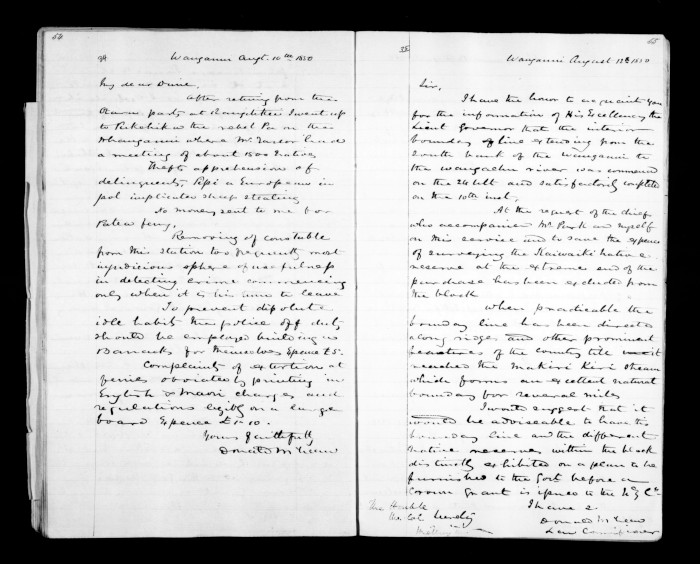 54
34 Wanganui Augt. 10th 1850
My dear Dine,
After retiring from the
party at Rangitikei I went up
to Pukehika the rebel Pa on the
Whanganui where Mr. Taylor had
a meeting of about 1500 natives
Thefts apprehension of
delinquents, Pepi a European in
pol implicated sheep stealing
No money sent to me for
Patea ferry,
Removing of constable
from this station too frequently most
injudicious sphere of usefulness
in detecting crime commencing
only when it is his turn to leave
To prevent dissolute
idle habits the police off duty
should be employed building
Barracks for themselves Expence £5.
Complaints of extortion at
ferries obviated by printing in
English & Maori charges and
regulations legibly on a large
board Expence £1-10.
Yours faithfully
Donald McLean
55
35 Wanganui August 12th 1850
Sir,
I have the honor to acquaint you
for the information of His Excellency the
Lieut Governor that the interior
boundary of line extending from the
South bank of the Wanganui to
the Wangaehu river was commenced
on the 24 ult and satisfactorily completed
on the 10th inst.
At the request of the chiefs
who accompanied Mr. Park and myself
on this service and to save the expence
of surveying the Kaiwaiki native
reserve at the extreme end of the
purchase has been excluded from
the block
When practicable the
boundary line has been directed
along ridges and other prominent
features of the country till
reached the Makiri Kiri stream
which forms an excellent natural
boundary for several miles
I would suggest that it
would be adviseable to have this
boundary line and the different
native reserves within the block
distinctly exhibited on a plan to be
furnished to the Govt before a
Crown grant is issued to the N.Z. Co.
I have &
Donald McLean
Land Commissioner
The Honble
the Col. Secretary